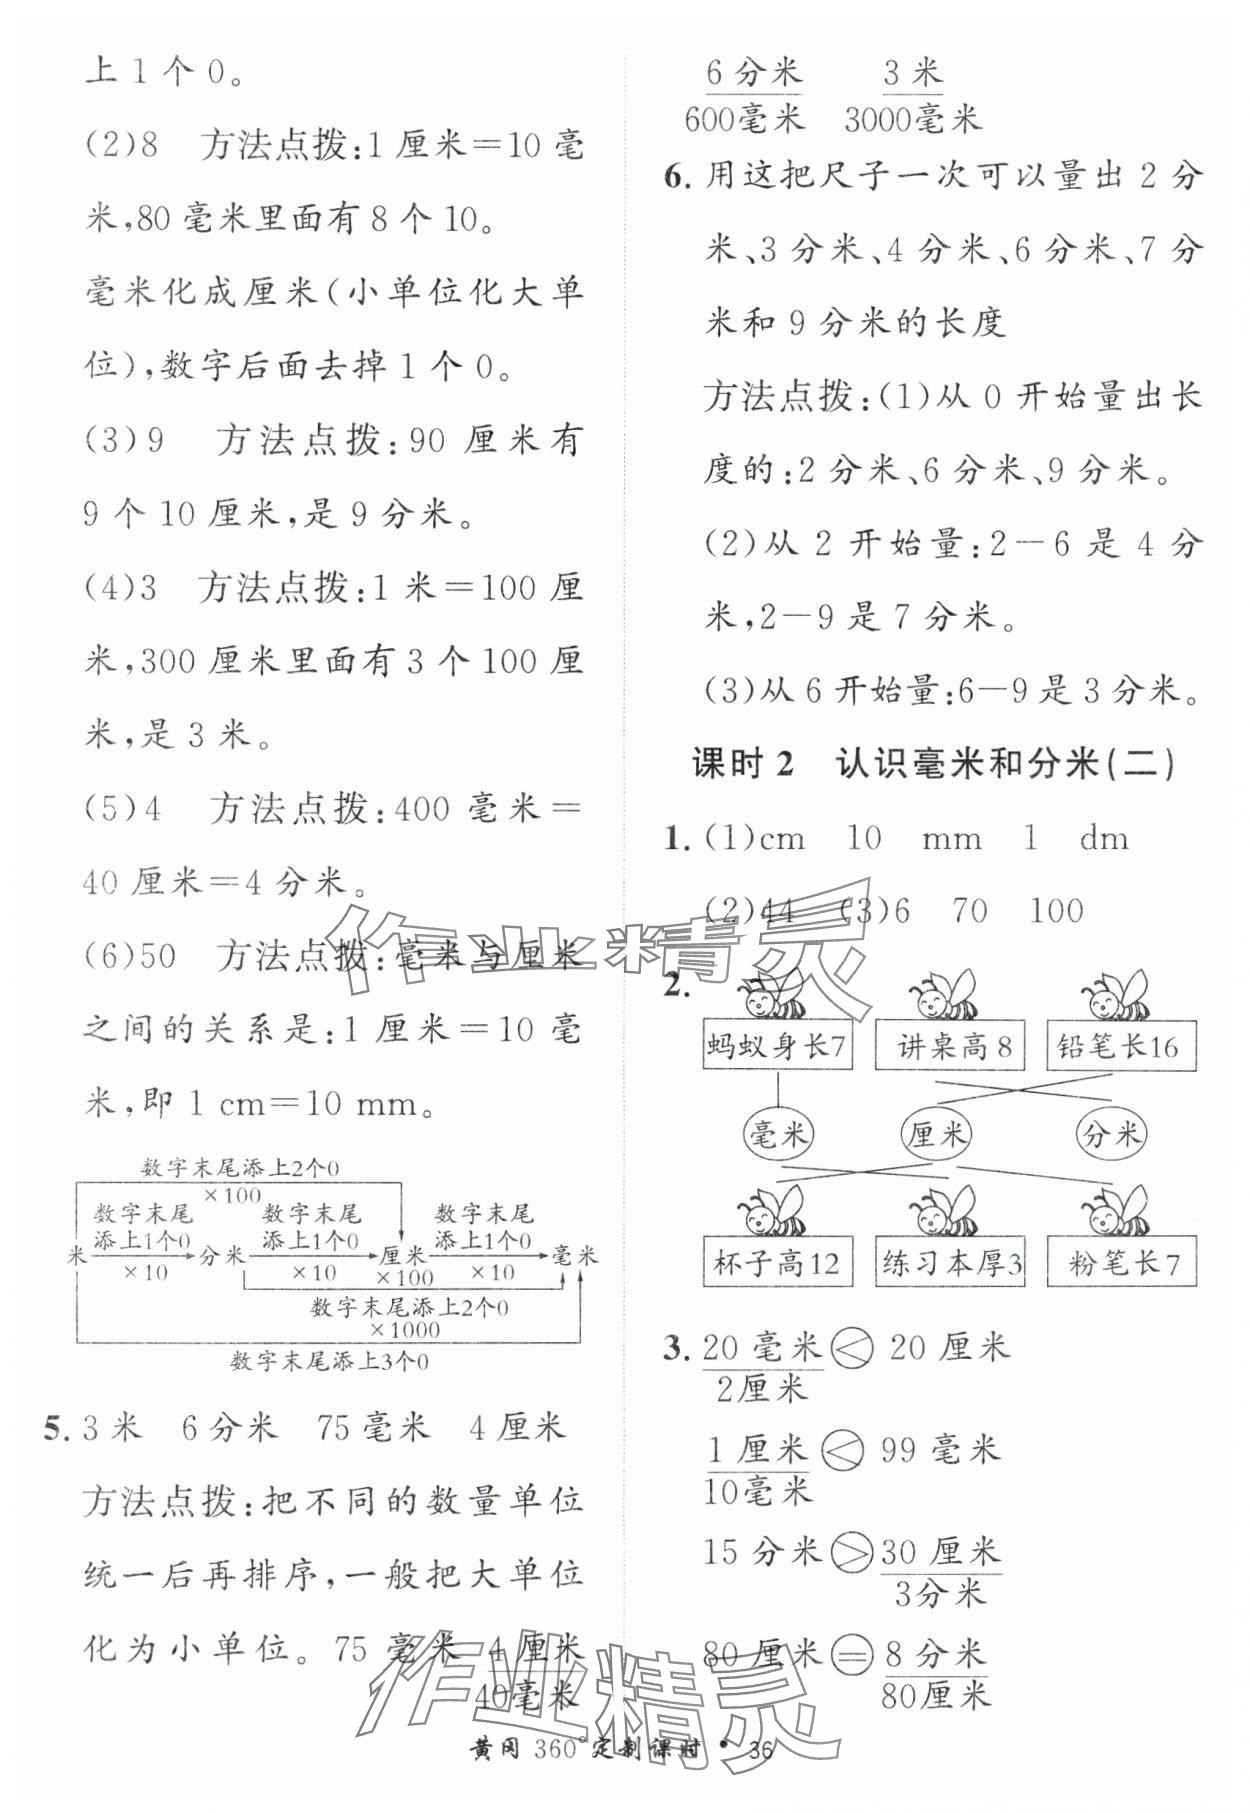 上1个0。
(2)8 方法点拨:1厘米=10毫
米,80毫米里面有8个10。
毫米化成厘米(小单位化大单
位),数字后面去掉1个0。
(3)9 方法点拨:90厘米有
9个10厘米,是9分米。
(4)3 方法点拨:1米=100厘
米,300厘米里面有3个100厘
米,是3米。
(5)4 方法点拨:400毫米=
40厘米=4分米。
(6)50 方法点拨:毫米与厘米
之间的关系是:1厘米=10毫
米,即1 cm=10 mm。
数字末尾添上2个0
×100
数字末尾 数字末尾 数字末尾
添上1个0 添上1个0 添上1个0
米 分米 厘米 毫米
×10 ×10 ×100 ×10
数字末尾添上2个0
×1000
数字末尾添上3个0
5. 3米 6分米 75毫米 4厘米
方法点拨:把不同的数量单位
统一后再排序,一般把大单位
化为小单位。75毫米 4厘米
40毫米
6分米 3米
600毫米 3000毫米
6. 用这把尺子一次可以量出2分
米、3分米、4分米、6分米、7分
米和9分米的长度
方法点拨:(1)从0开始量出长
度的:2分米、6分米、9分米。
(2)从2开始量:2-6是4分
米,2-9是7分米。
(3)从6开始量:6-9是3分米。
课时2 认识毫米和分米(二)
1. (1)cm 10 mm 1 dm
(2)44 (3)6 70 100
2.
蚂蚁身长7 讲桌高8 铅笔长16
毫米 厘米 分米
杯子高12 练习本厚3 粉笔长7
3. 20毫米<20厘米
2厘米
1厘米<99毫米
10毫米
15分米>30厘米
3分米
80厘米=8分米
80厘米
作业精灵
作业精灵
黄冈360°定制课时·36